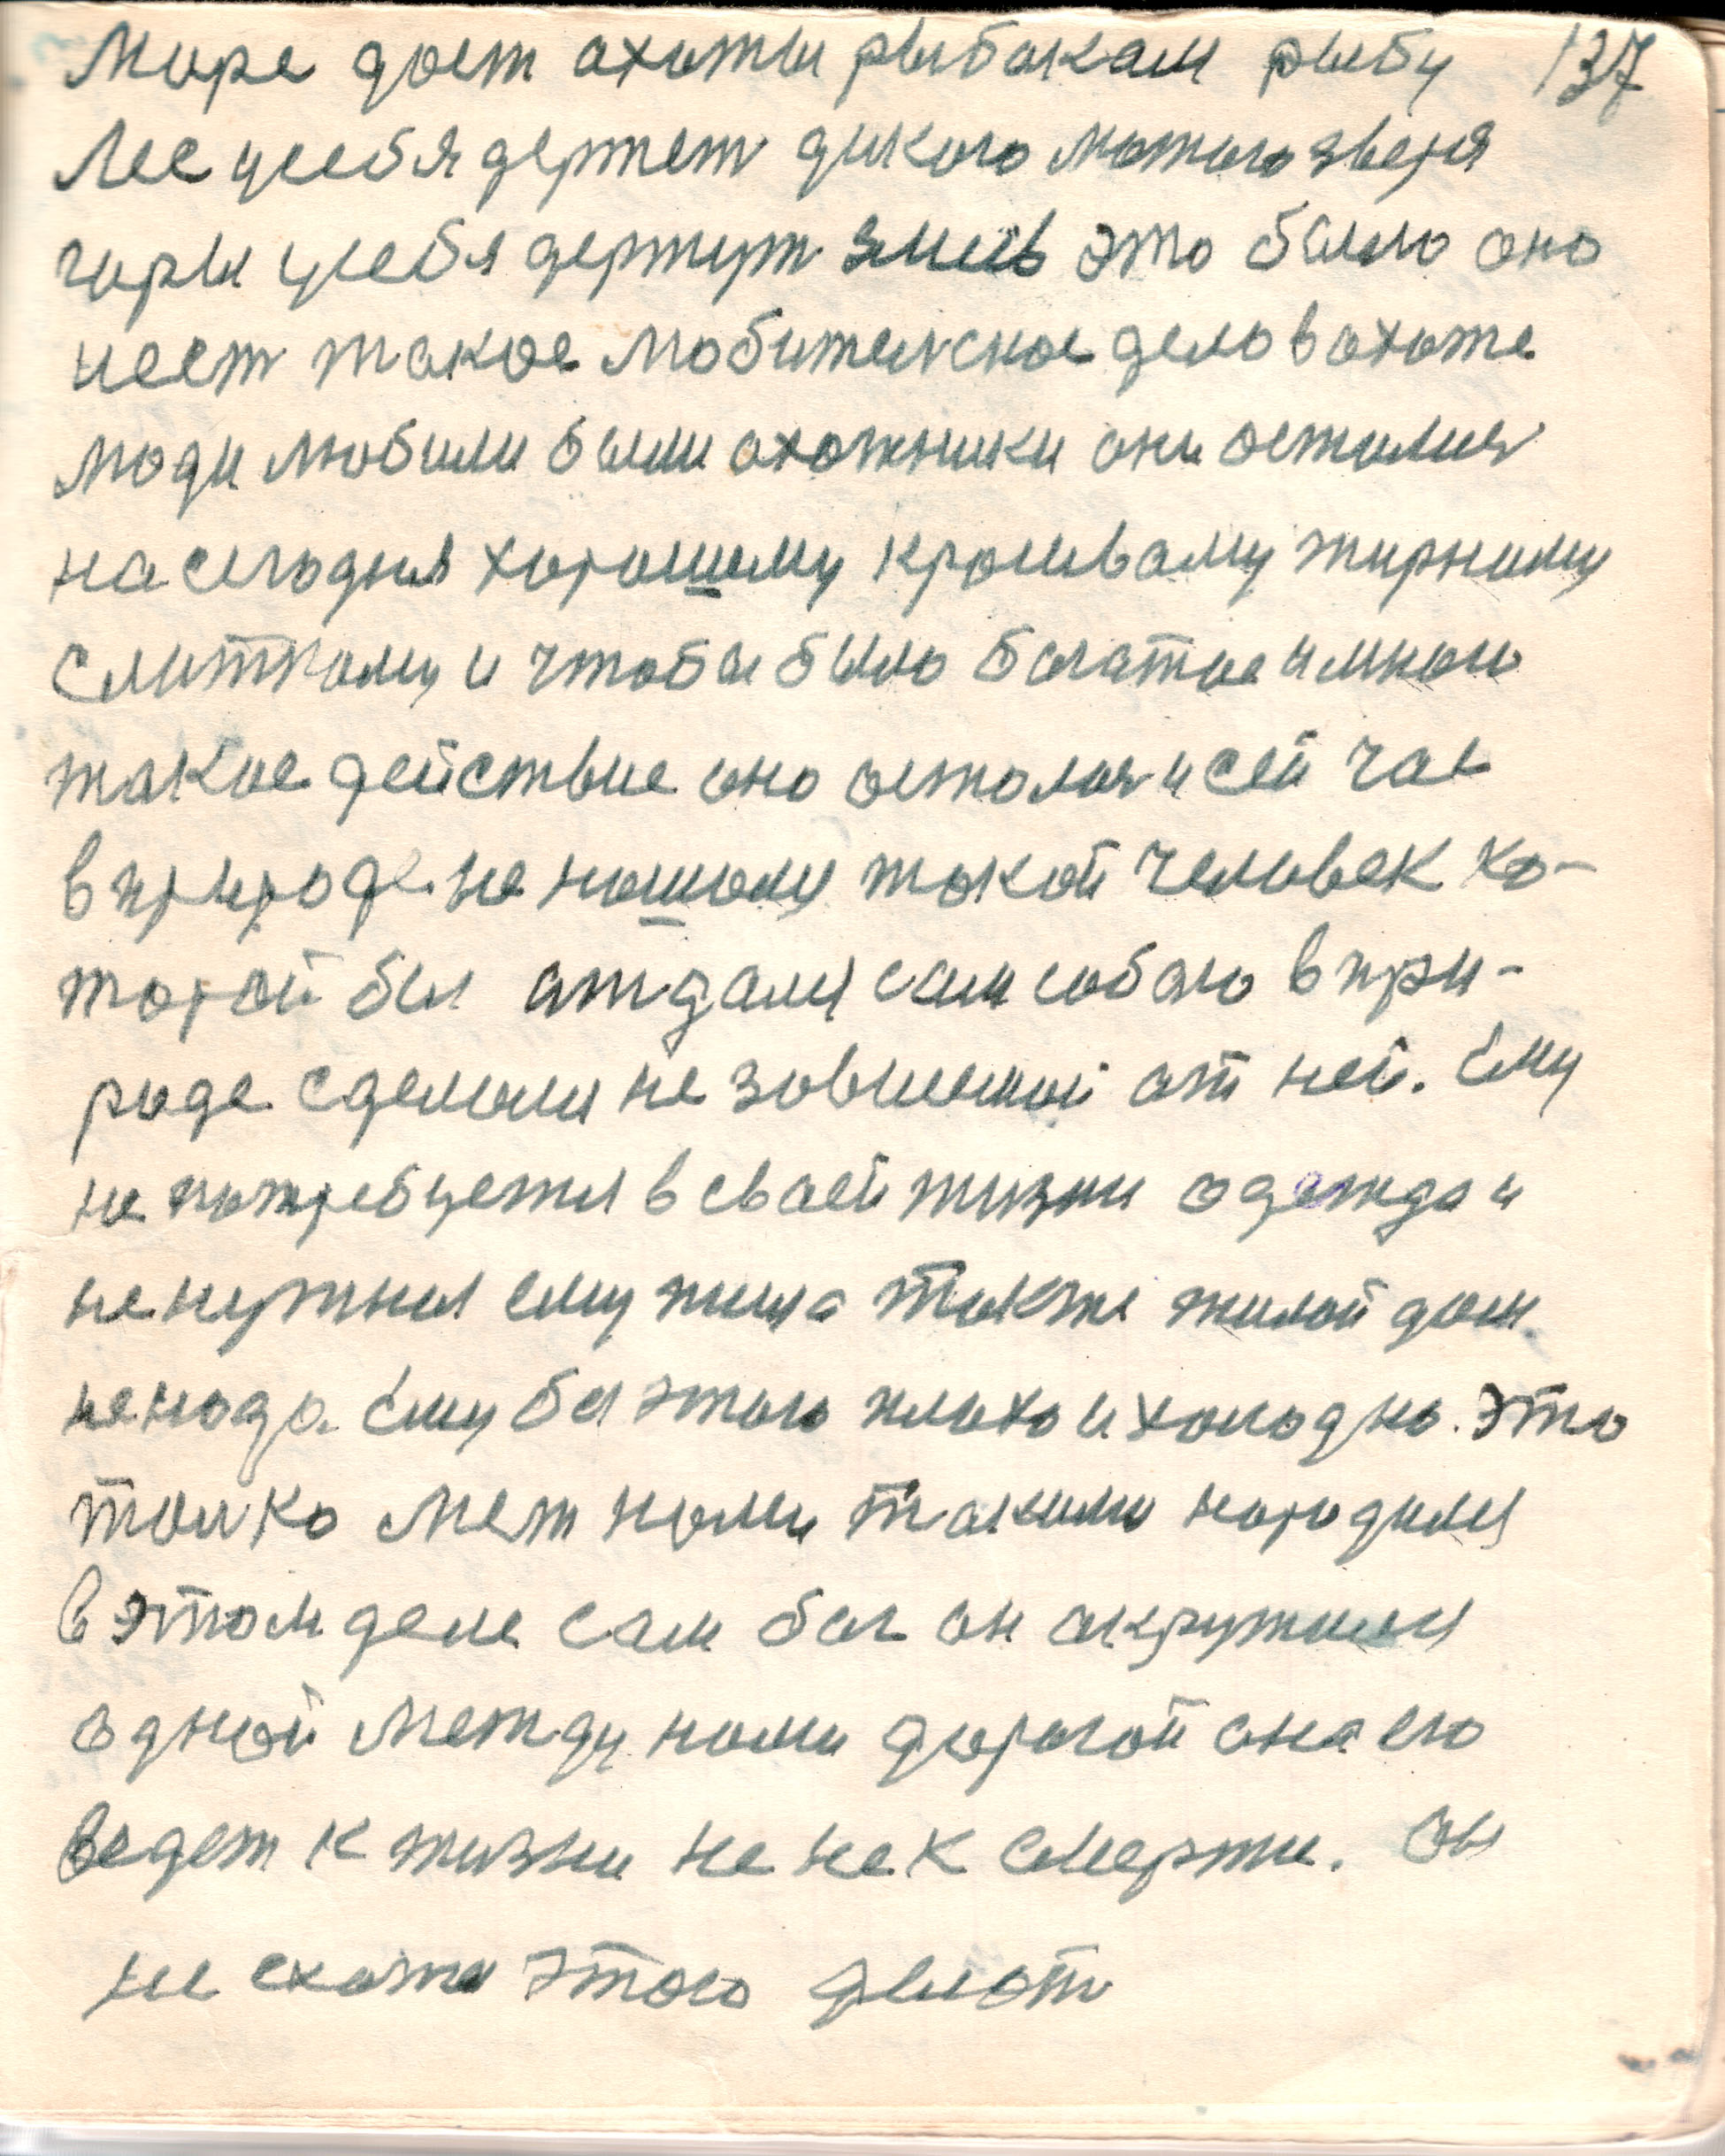 Море дает ахоты рыбакам рыбу 137
Лес усебя держет дикого лютого зверя
горы усебя держут змиев это было оно
и ест такое любительское дело в охоте
люди любили были охотники они осталися
на сегодня хорошому кросивому жирному
слаткому и чтобы было богатое и много
такое действие оно осталося и сей час
в природе не нашолся такой человек ко-
торой бы атдался сам собою в при-
роде сделался не зовисемой от ней. Ему
не потребуется в своей жизни одежда и
не нужная ему пища также жилой дом
не нада. Ему бы этого плохо и холодно. Это
только меж нами такими народился
в этом деле сам бог он акружился
одной между нами дорогой она его
ведет к жизни не не к смерти. Он
не схотел этого делать